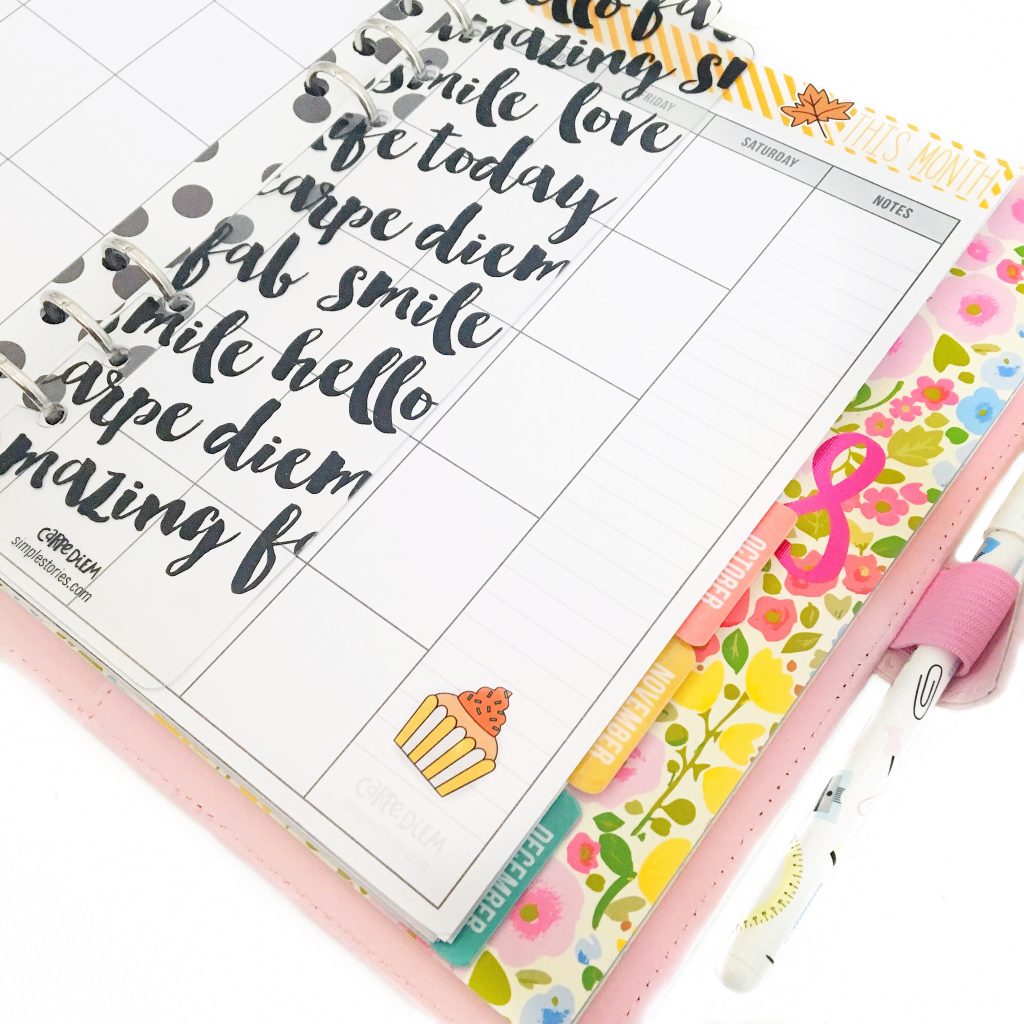 hello fa
amazing sm
smile love
life today
carpe diem
fab smile
smile hello
carpe diem
amazing fa
CARPE DIEM
simplestories.com
FRIDAY
SATURDAY
NOTES
THIS MONTH
OCTOBER
NOVEMBER
DECEMBER
CARPE DIEM
simplestories.com